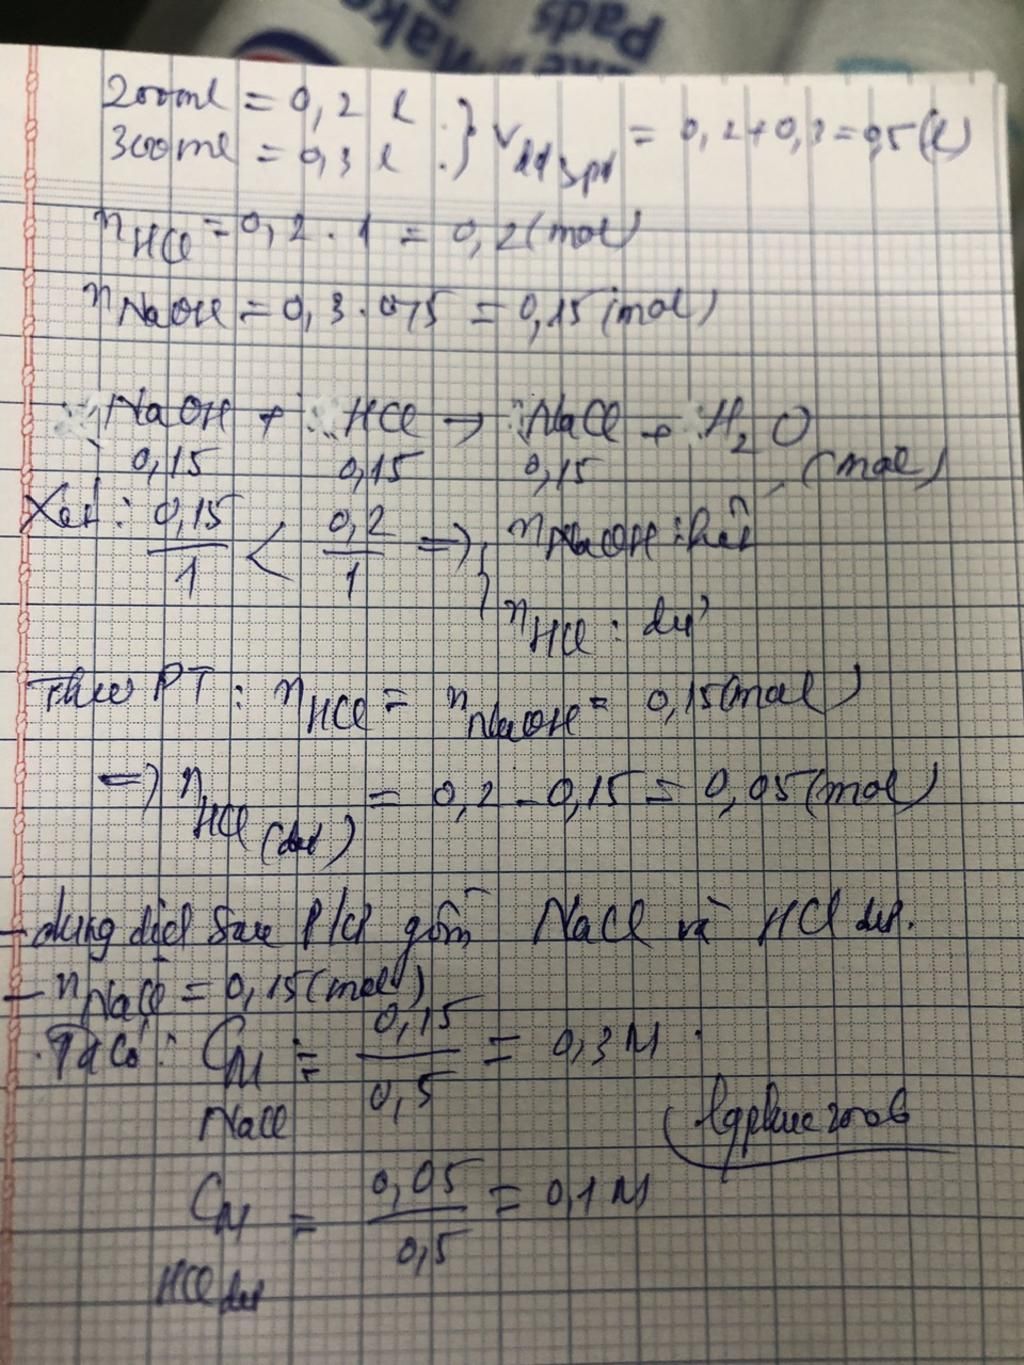 Make
Pads
200ml = 0,2 l
300ml = 0,3 l } Vdd spứ = 0,2+0,3=0,5(l)
nHCl = 0,2 . 1 = 0,2(mol)
nNaOH = 0,3 . 0,75 = 0,15(mol)
NaOH + HCl → NaCl + H2O
0,15 0,15 0,15 (mol)
Xét: 0,15/1 < 0,2/1 => { nNaOH : hết
nHCl : dư
Theo PT: nHCl = nNaOH = 0,15(mol)
=> nHCl (dư) = 0,2 - 0,15 = 0,05(mol)
- dung dịch sau p/ứ gồm NaCl và HCl dư.
- nNaCl = 0,15(mol)
. Ta có: CM NaCl = 0,15/0,5 = 0,3M
CM HCl dư = 0,05/0,5 = 0,1M